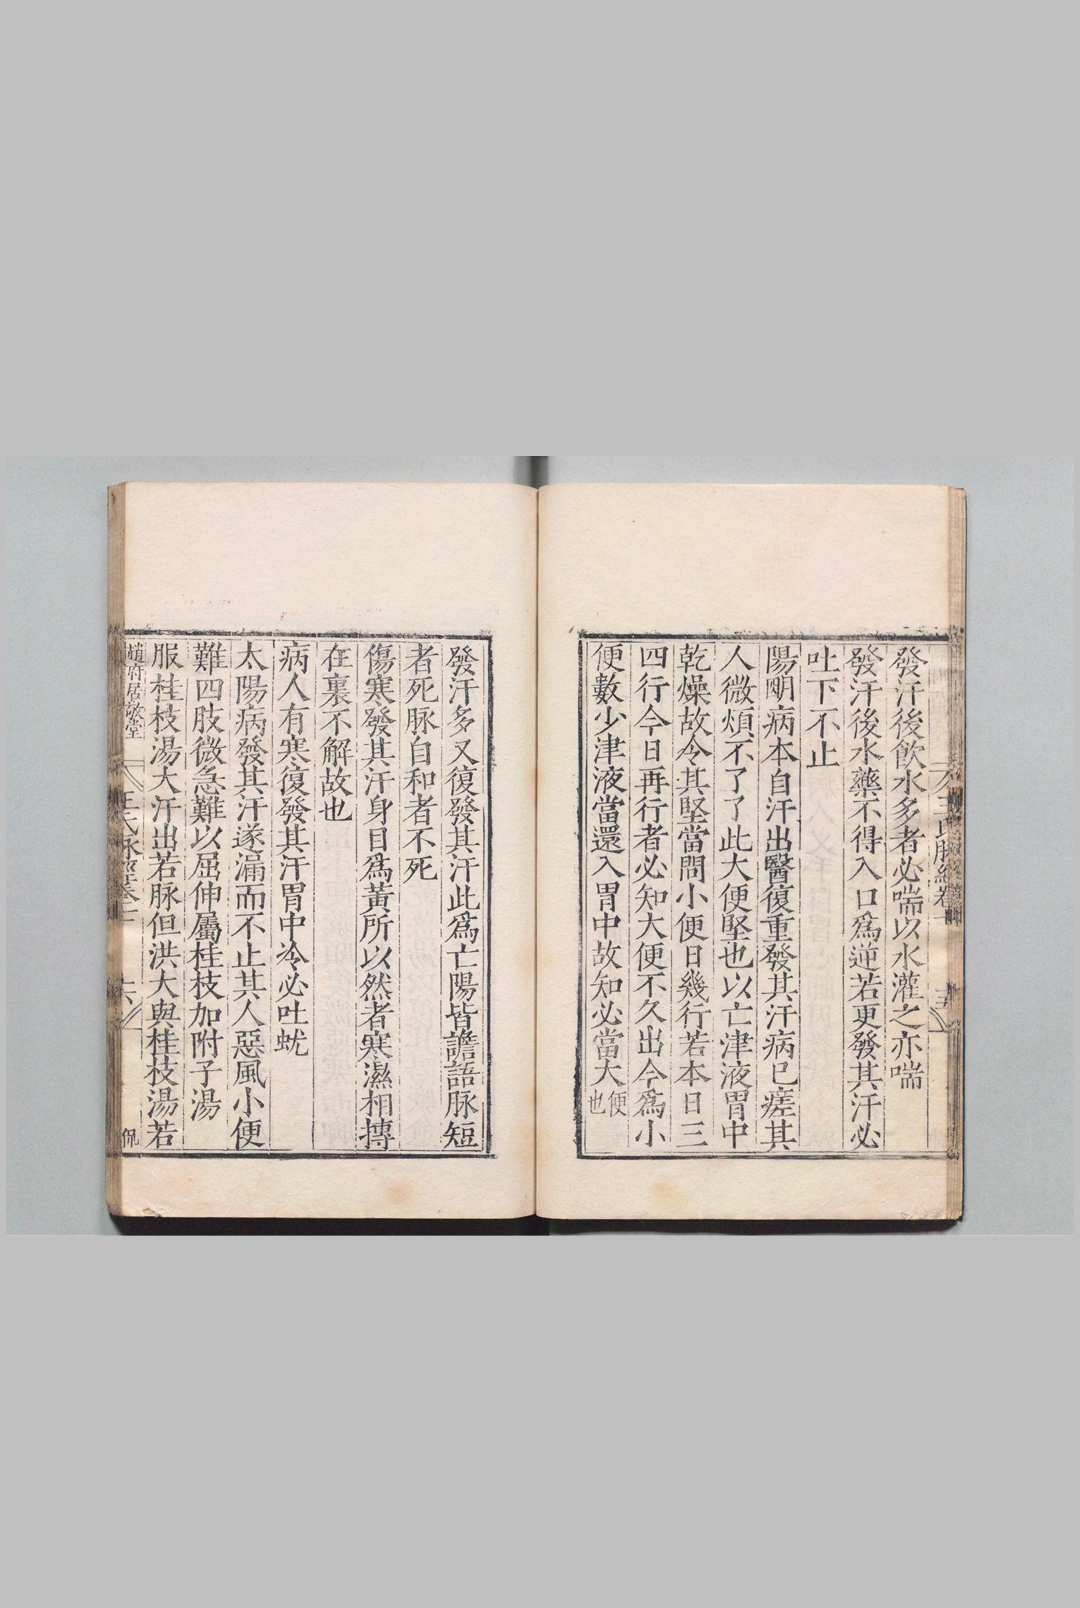 發汗後飲水多者必喘以水灌之亦喘
發汗後水藥不得入口爲逆若更發其汗必
吐下不止
陽明病本自汗出醫復重發其汗病已瘥其
人微煩不了了此大便堅也以亡津液胃中
乾燥故令其堅當問小便日幾行若本日三
四行今日再行者必知大便不久出今爲小
便數少津液當還入胃中故知必當大便也
發汗多又復發其汗此爲亡陽皆譫語脉短
者死脉自和者不死
傷寒發其汗身目爲黃所以然者寒濕相摶
在裏不解故也
病人有寒復發其汗胃中冷必吐蚘
太陽病發其汗遂漏而不止其人惡風小便
難四肢微急難以屈伸屬桂枝加附子湯
服桂枝湯大汗出若脉但洪大與桂枝湯若
趙府居敬堂
王氏脉經卷
十六